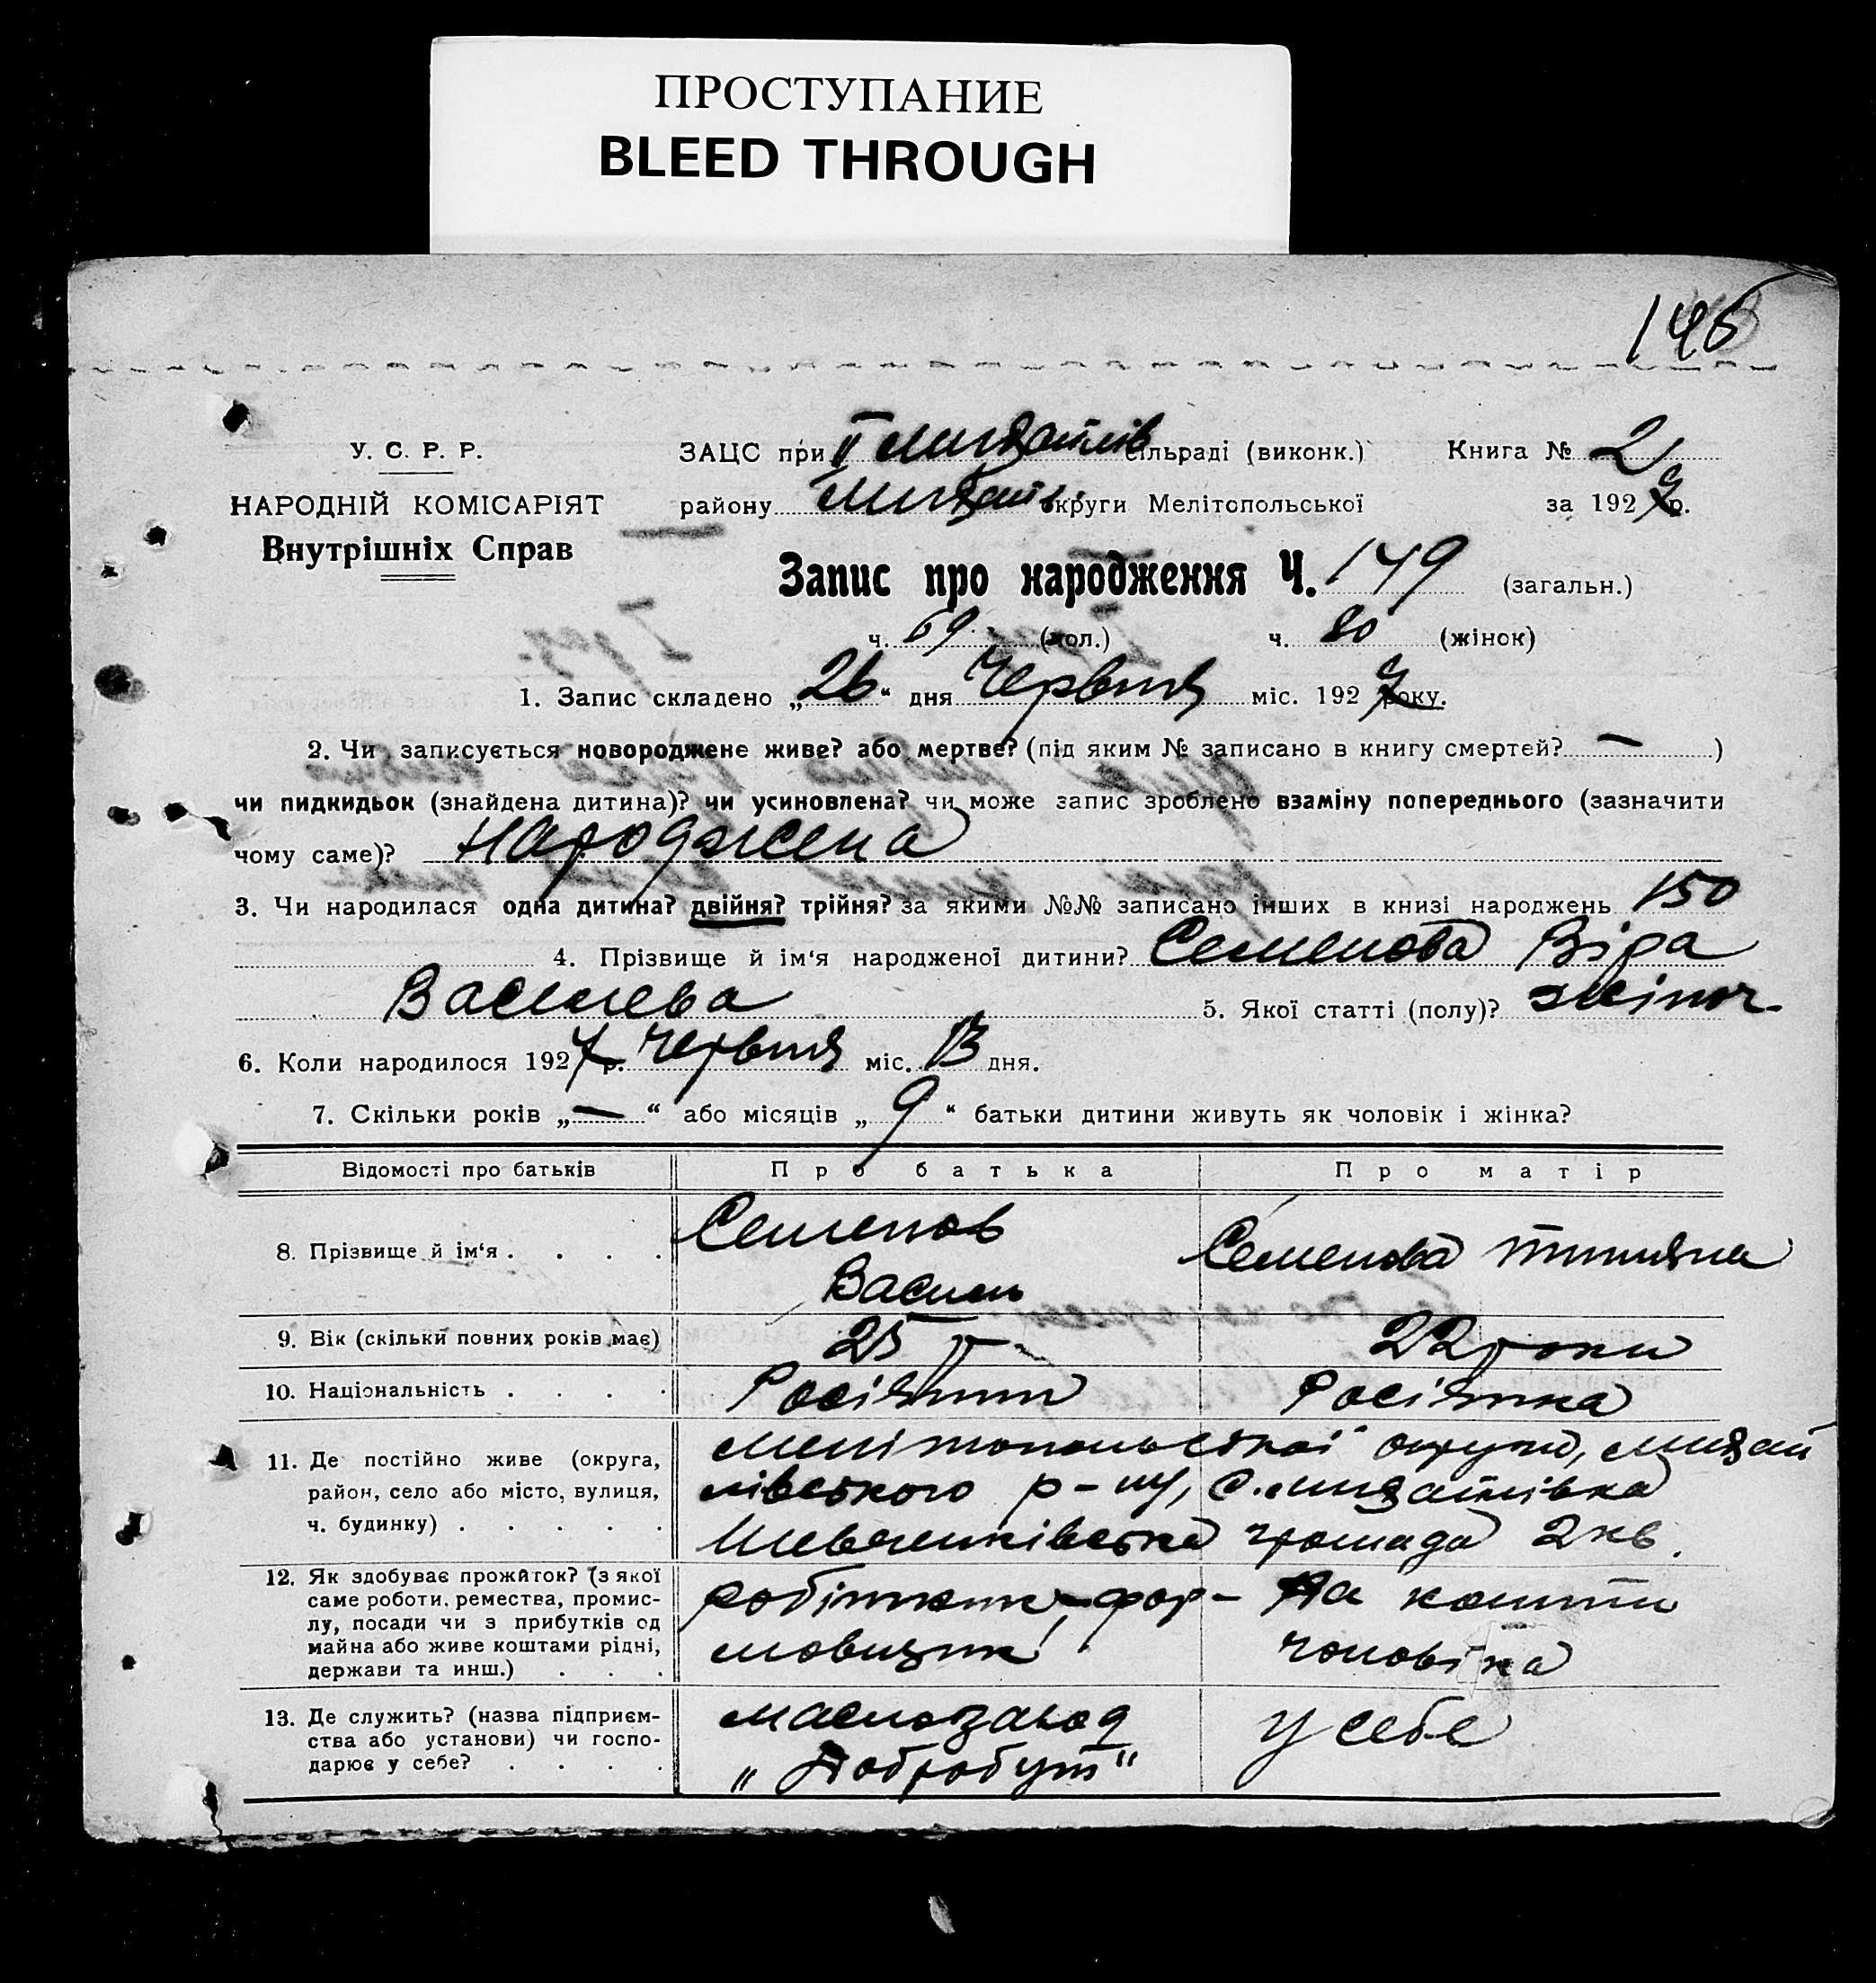 ПРОСТУПАНИЕ
BLEED THROUGH
146
У. С. Р. Р. ЗАЦС при II Михайлів сільраді (виконк.) Книга № 2
НАРОДНІЙ КОМІСАРІЯТ району Михайл. округи Мелітопольської за 1927 р.
Внутрішніх Справ
Запис про народження Ч. 149 (загальн.)
ч. 69 (хол.) ч. 80 (жінок)
1. Запис складено „26“ дня Червня міс. 1927 року.
2. Чи записується новороджене живе? або мертве? (під яким № записано в книгу смертей? — )
чи пидкидьок (знайдена дитина)? чи усиновлена? чи може запис зроблено взаміну попереднього (зазначити
чому саме)? Народжена
3. Чи народилася одна дитина? двійня? трійня? за якими №№ записано інших в книзі народжень 150
4. Прізвище й ім‘я народженої дитини? Семенова Віра
Василева 5. Якої статті (полу)? жіноч.
6. Коли народилося 1927 р. Червня міс. 13 дня.
7. Скільки років „—“ або місяців „9“ батьки дитини живуть як чоловік і жінка?
Відомості про батьків Про батька Про матір
8. Прізвище й ім‘я . . . . Семенов
Василь
Семенова Тетяна
9. Вік (скільки повних років має) 25 р. 22 роки
10. Національність . . . . Росіянин Росіянка
11. Де постійно живе (округа,
район, село або місто, вулиця,
ч. будинку) . . . . .
Мелітопольської округи, Михай
лівського р-ну, с. Михайлівка
Шевченківська громада 2 кв.
12. Як здобуває прожиток? (з якої
саме роботи, ремества, промис-
лу, посади чи з прибутків од
майна або живе коштами рідні,
держави та инш.) . . .
робітник, фор-
мовщик
На кошти
чоловіка
13. Де служить? (назва підприєм-
ства або установи) чи госпо-
дарює у себе? . . . .
Маслозавод
„Добробут“
У себе